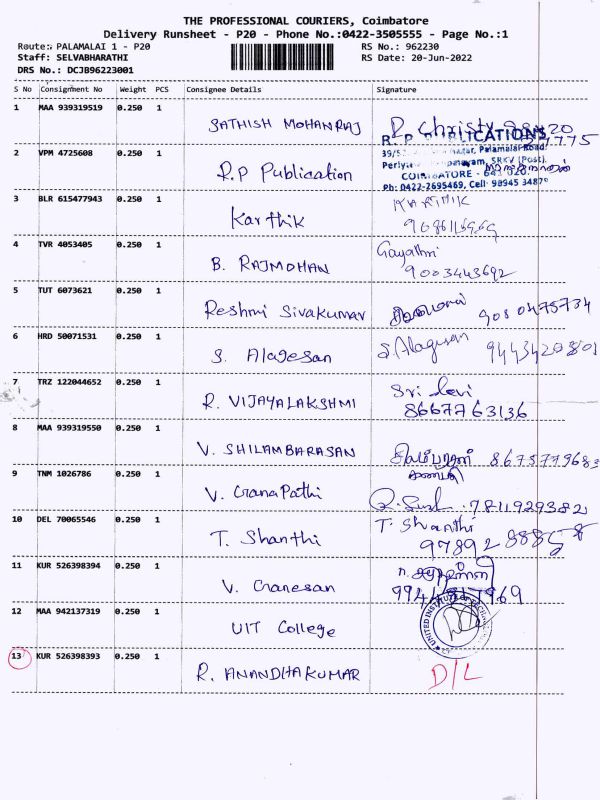 THE PROFESSIONAL COURIERS, Coimbatore
Delivery Runsheet - P20 - Phone No.:0422-3505555 - Page No.:1
Route: PALAMALAI 1 - P20 RS No.: 962230
Staff: SELVABHARATHI RS Date: 20-Jun-2022
DRS No.: DCJB96223001
S No Consignment No Weight PCS Consignee Details Signature
1 MAA 939319519 0.250 1
SATHISH MOHANRAJ R Christy
R.P PUBLICATIONS
2 VPM 4725608 0.250 1 Palamalai Road
SRKV (Post),
R.P Publication COIMBATORE - 641 020.
Ph: 0422-2695469, Cell: 98945 34879
3 BLR 615477943 0.250 1 KARTHIK
Karthik
4 TVR 4053405 0.250 1 Gayathri
B. RAJMOHAN 9003443692
5 TUT 6073621 0.250 1
Reshmi Sivakumar 9080475734
6 HRD 50071531 0.250 1
S. Alagesan S. Alagesan 9443420801
7 TRZ 122044652 0.250 1 Sri Devi
R. VIJAYALAKSHMI 8667763136
8 MAA 939319550 0.250 1
V. SHILAMBARASAN சிலம்பரசன் 8675779683
9 TNM 1026786 0.250 1 கணபதி
V. GanaPathi 7811929382
10 DEL 70065546 0.250 1 T. Shanthi
T. Shanthi
11 KUR 526398394 0.250 1
V. Ganesan
12 MAA 942137319 0.250 1
UIT College
UNITED INSTITUTE OF TECHNOLOGY
13 KUR 526398393 0.250 1
R. ANANDHAKUMAR D/L